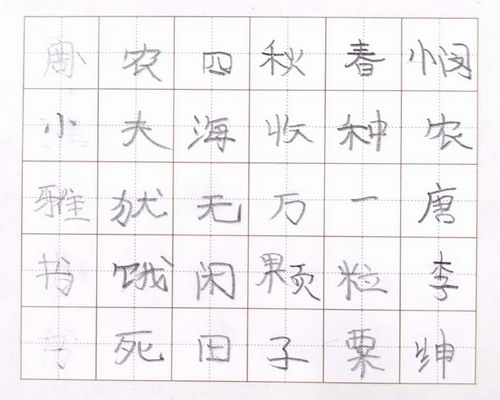 悯农唐李绅
春种一粒粟
秋收万颗子
四海无闲田
农夫犹饿死
周小雅书